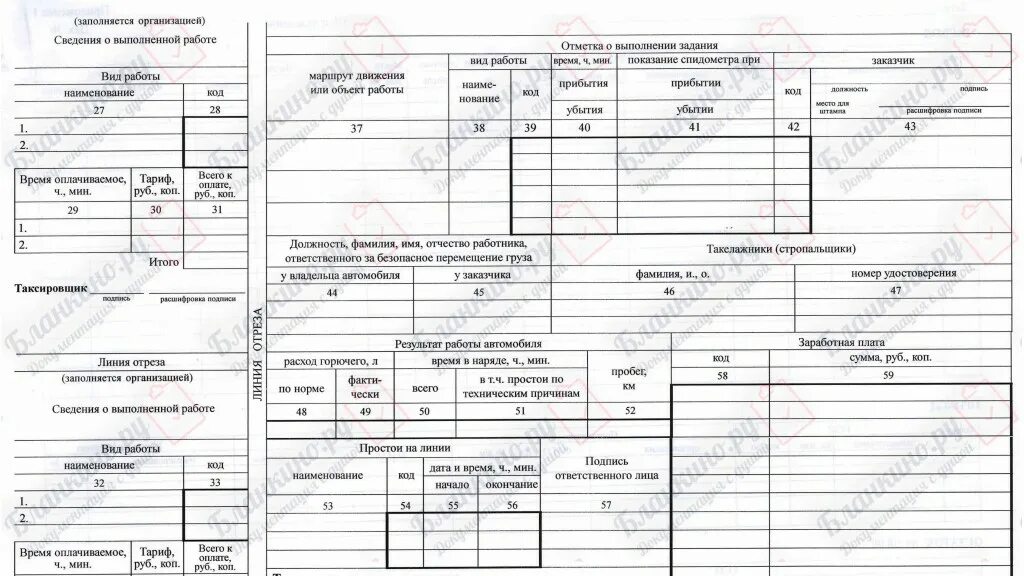 (заполняется организацией)
Сведения о выполненной работе
Вид работы
наименование код
27 28
1.
2.
Время оплачиваемое, ч., мин. Тариф, руб., коп. Всего к оплате, руб., коп.
29 30 31
1.
2.
Итого
Таксировщик
подпись расшифровка подписи
Линия отреза
(заполняется организацией)
Сведения о выполненной работе
Вид работы
наименование код
32 33
1.
2.
Время оплачиваемое, ч., мин. Тариф, руб., коп. Всего к оплате, руб., коп.
ЛИНИЯ ОТРЕЗА
Отметка о выполнении задания
маршрут движения или объект работы
вид работы
наиме-
нование
код
время, ч, мин.
прибытия
убытия
показание спидометра при
прибытии
убытии
код
заказчик
должность подпись
место для штампа расшифровка подписи
37 38 39 40 41 42 43
Должность, фамилия, имя, отчество работника,
ответственного за безопасное перемещение груза
Такелажники (стропальщики)
у владельца автомобиля у заказчика фамилия, и., о. номер удостоверения
44 45 46 47
Результат работы автомобиля
расход горючего, л время в наряде, ч., мин.
пробег, км
по норме
факти-
чески
всего
в т.ч. простои по
техническим причинам
48 49 50 51 52
Заработная плата
код сумма, руб., коп.
58 59
Простои на линии
наименование код дата и время, ч., мин.
начало окончание
Подпись
ответственного лица
53 54 55 56 57
Бланкино.ру
Документация с душой